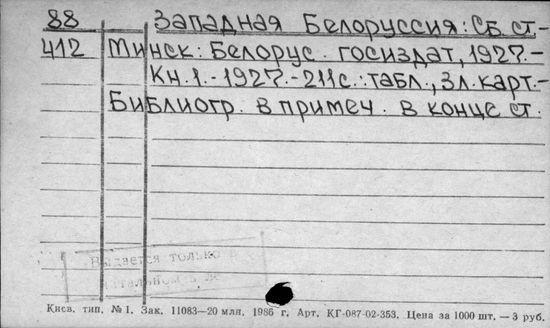 88 Западная Белоруссия: Сб. ст.-
412 Минск: Белорус. госиздат, 1927.-
Кн. 1.-1927.-211с.: табл., 3л. карт.-
Библиогр. в примеч. в конце ст.
Выдается только в
Киев. тип. №1. Зак. 11083—20 млн. 1986 г. Арт. КГ-087-02-353. Цена за 1000 шт. — 3 руб.